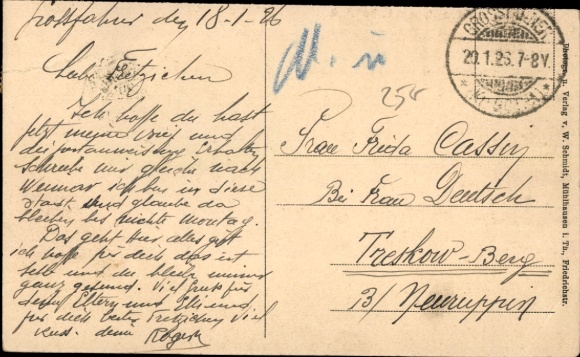 Grossfahner den 18-1-26
Liebe Fritzichen
Ich hoffe du hast
jetz meine Brief und
die postanweisung erhalten
schreibe mir gleich nach
Weimar ich bin in diese
stadt und glaube da
bleiben bis nichte montag.
Das geht hir alles gut
ich hoffe für dich das ist
selb und du bleibe immer
ganz gesund. Viel Gruss für
deine Eltern und
für dich liebe Fritzichen viel
Kuss. dein
W. n
254
GROSSFAHNER
20.1.26.7-8V.
Frau Frida Cassin
Bei Frau Deutsch
Treskow-Berg
B/ Neuruppin
Verlag v. W. Schmidt, Mühlhausen i. Th., Friedrichstr.